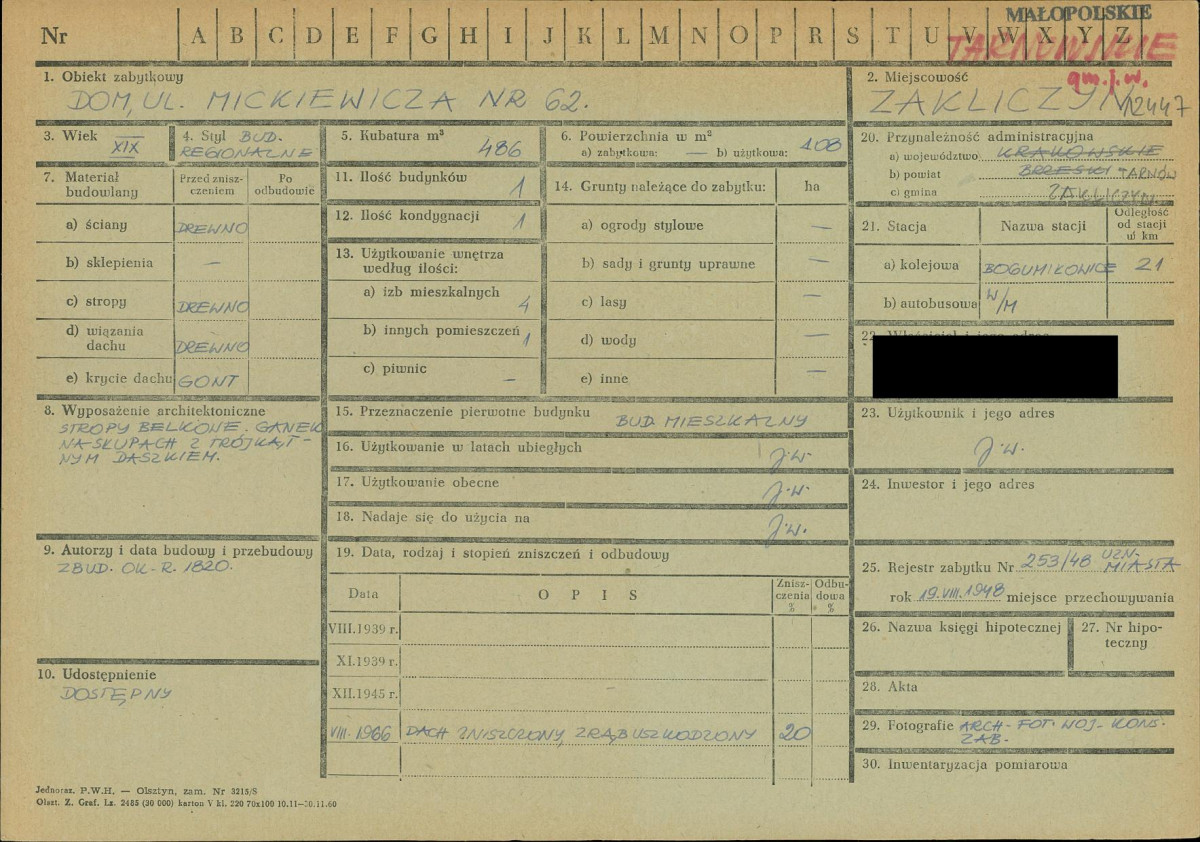 MAŁOPOLSKIE
Nr A B C D E F G H I J K L M N O P R S T U V W X Y Z
TARNOWSKIE
gm. j. w.
1. Obiekt zabytkowy
DOM, UL. MICKIEWICZA NR 62.
2. Miejscowość
ZAKLICZYN 12447
3. Wiek
XIX
4. Styl BUD.
REGIONALNE
5. Kubatura m³
486
6. Powierzchnia w m²
a) zabytkowa: — b) użytkowa: 108
7. Materiał budowlany
Przed zniszczeniem
Po odbudowie
a) ściany DREWNO
b) sklepienia —
c) stropy DREWNO
d) wiązania dachu DREWNO
e) krycie dachu GONT
8. Wyposażenie architektoniczne
STROPY BELKOWE. GANEK
NA SŁUPACH Z TRÓJKĄT-
NYM DASZKIEM.
9. Autorzy i data budowy i przebudowy
ZBUD. OK. R. 1820.
10. Udostępnienie
DOSTĘPNY
11. Ilość budynków 1
12. Ilość kondygnacji 1
13. Użytkowanie wnętrza
według ilości:
a) izb mieszkalnych 4
b) innych pomieszczeń 1
c) piwnic —
14. Grunty należące do zabytku: ha
a) ogrody stylowe —
b) sady i grunty uprawne —
c) lasy —
d) wody —
e) inne —
15. Przeznaczenie pierwotne budynku
BUD. MIESZKALNY
16. Użytkowanie w latach ubiegłych j.w.
17. Użytkowanie obecne j.w.
18. Nadaje się do użycia na j.w.
19. Data, rodzaj i stopień zniszczeń i odbudowy
Data O P I S Zniszczenia % Odbudowa %
VIII.1939 r.
XI.1939 r.
XII.1945 r.
VIII.1966 DACH ZNISZCZONY, ZRĄB USZKODZONY 20
20. Przynależność administracyjna
a) województwo KRAKOWSKIE
b) powiat BRZESKI TARNÓW
c) gmina ZAKLICZYN.
21. Stacja Nazwa stacji Odległość od stacji w km
a) kolejowa BOGUMIŁOWICE 21
b) autobusowa W/M
22. Właściciel i jego adres
23. Użytkownik i jego adres
j.w.
24. Inwestor i jego adres
25. Rejestr zabytku Nr 253/48 UZN. MIASTA
rok 19.VIII.1948 miejsce przechowywania
26. Nazwa księgi hipotecznej
27. Nr hipo-
teczny
28. Akta
29. Fotografie ARCH. FOT. WOJ. KONS.
ZAB.
30. Inwentaryzacja pomiarowa
Jednoraz. P.W.H. — Olsztyn, zam. Nr 3215/S
Olszt. Z. Graf. Lz. 2485 (30 000) karton V kl. 220 70x100 10.11—30.11.60